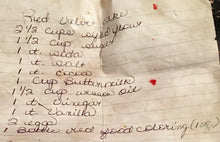 Red Velvet Cake
2 1/2 cups wesson flour
1 1/2 cup sugar
1 t. soda
1 t. salt
1 t. cocoa
1 cup Buttermilk
1 1/2 cup wesson oil
1 t. vinegar
1 t. vanilla
2 eggs
1 Bottle red food coloring (1 oz.)